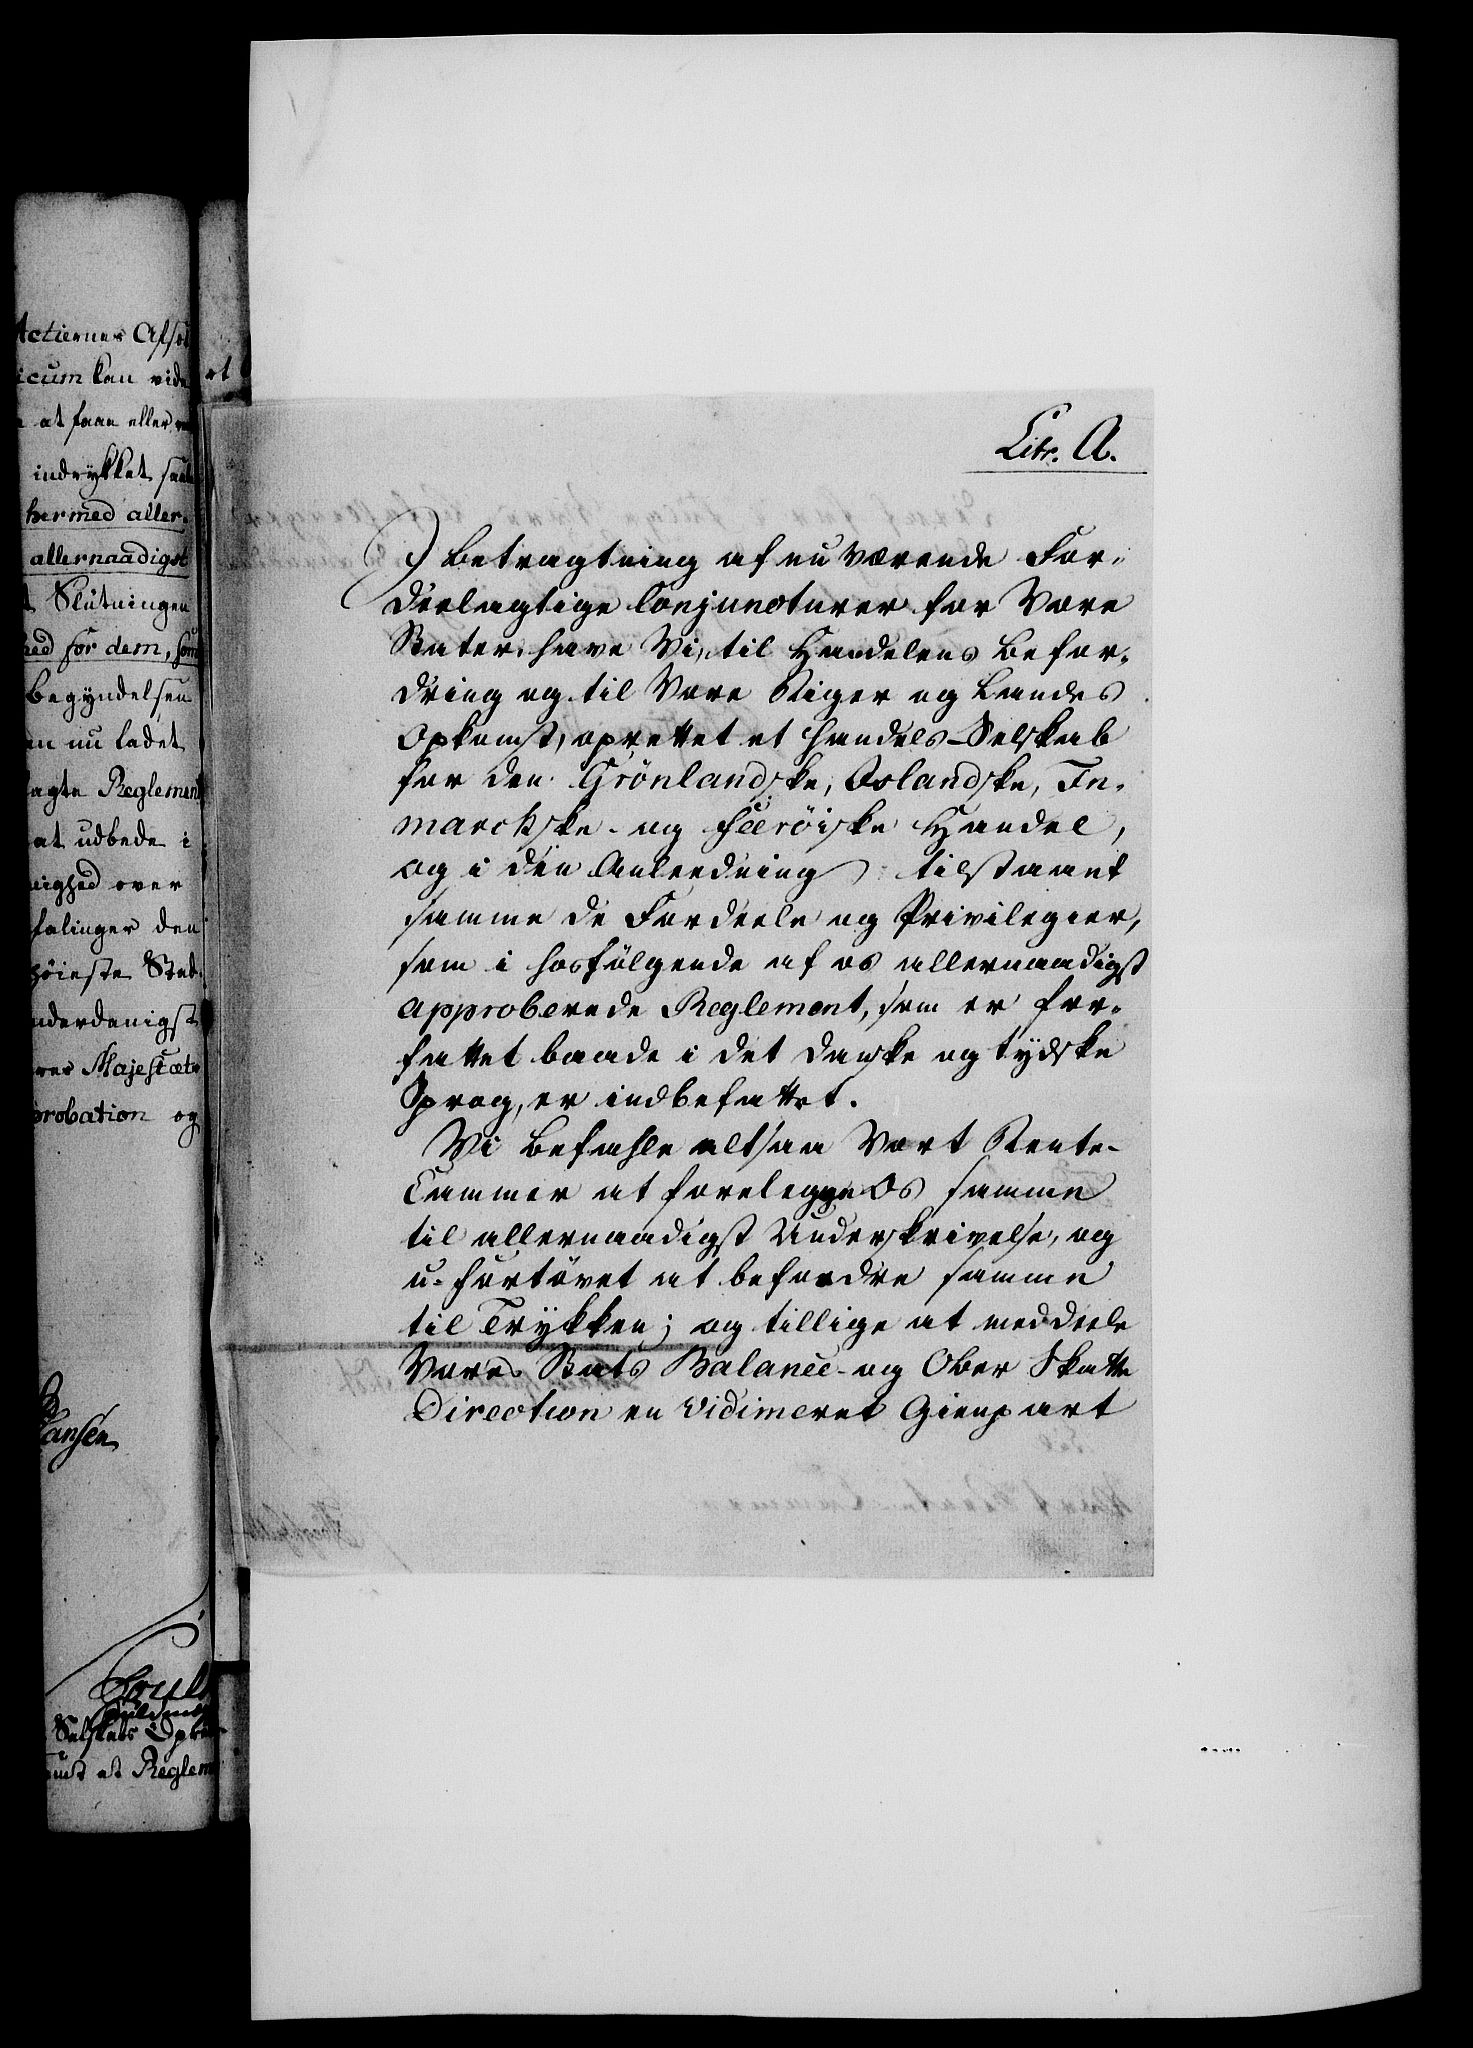 Actiernes Afsæ
icum kan vide
at faae eller
indrykket saa
hermed aller-
allernaadigst
Slutningen
hed for dem, som
Begyndelsen
en nu ladet
agte Reglement
at udbede i
nighed over
falinger den
høieste Sted
nderdanigst
res Majestæts
probation og
Hansen
Selskabs Opret
et Reglem
Litr. A.
I Betragtning af nu værende For-
deelagtige Conjuncturer for Vore
Stater, have Vi, til Handelens Befor-
dring og til Vore Riger og Landes
Opkomst, oprettet et Handels-Selskab
for den Grönlandske, Islandske, Fin-
marckske- og Færöiske Handel,
og i den Anleedning tilstaaet
samme de Fordeele og Privilegier,
som i hosfölgende af os allernaadigst
approberede Reglement, som er for-
fattet baade i det danske og tydske
Sprog, er indbefattet.
Vi befahle altsaa Vort Rente-
Cammer at forelegge Os samme
til allernaadigst Underskrivelse, og
u-fortövet at befordre samme
til Trykken; og tillige at meddeele
Vores Stats Balance- og Ober Skatte
Direction en vidimeret Gienpart